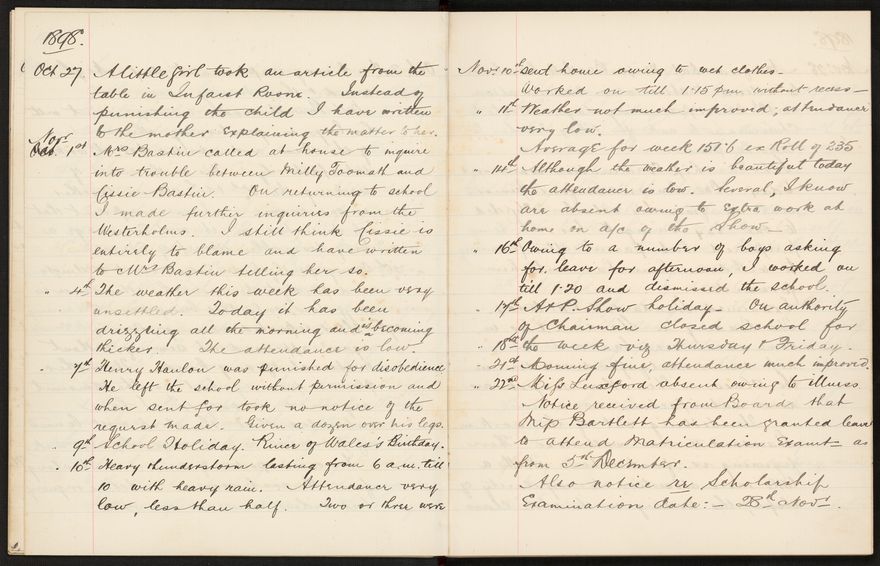 1898.
Oct 27. A little girl took an article from the
table in Infant Room. Instead of
punishing the child I have written
to the mother explaining the matter to her.
Novr 1st Mrs Bastin called at house to inquire
into trouble between Milly Toomath and
Cissie Bastin. On returning to school
I made further inquiries from the
Westerholms. I still think Cissie is
entirely to blame and have written
to Mrs Bastin telling her so.
" 4th The weather this week has been very
unsettled. Today it has been
drizzling all the morning and is becoming
thicker. The attendance is low.
" 7th Henry Hanlon was punished for disobedience
He left the school without permission and
when sent for took no notice of the
request made. Given a dozen over his legs.
" 9th School Holiday. Prince of Wales's Birthday.
" 10th Heavy thunderstorm lasting from 6 a.m. till
10 with heavy rain. Attendance very
low, less than half. Two or three were
Novr 10th send home owing to wet clothes.
Worked on till 1.15 p.m. without recess—
" 11th Weather not much improved; attendance
very low.
Average for week 157.6 ex Roll of 235
" 14th Although the weather is beautiful today
the attendance is low. Several, I know
are absent owing to extra work at
home on a/c of the Show—
" 16th Owing to a number of boys asking
for leave for afternoon, I worked on
till 1.20 and dismissed the school.
" 17th A & P. Show holiday— On authority
of Chairman closed school for
" 18th the week viz Thursday & Friday.
" 21st Morning fine, attendance much improved.
" 22nd Miss Luxford absent owing to illness
Notice received from Board that
Miss Bartlett has been granted leave
to attend Matriculation Examt— as
from 5th December.
Also notice re Scholarship
Examination date:— 28th Novr.